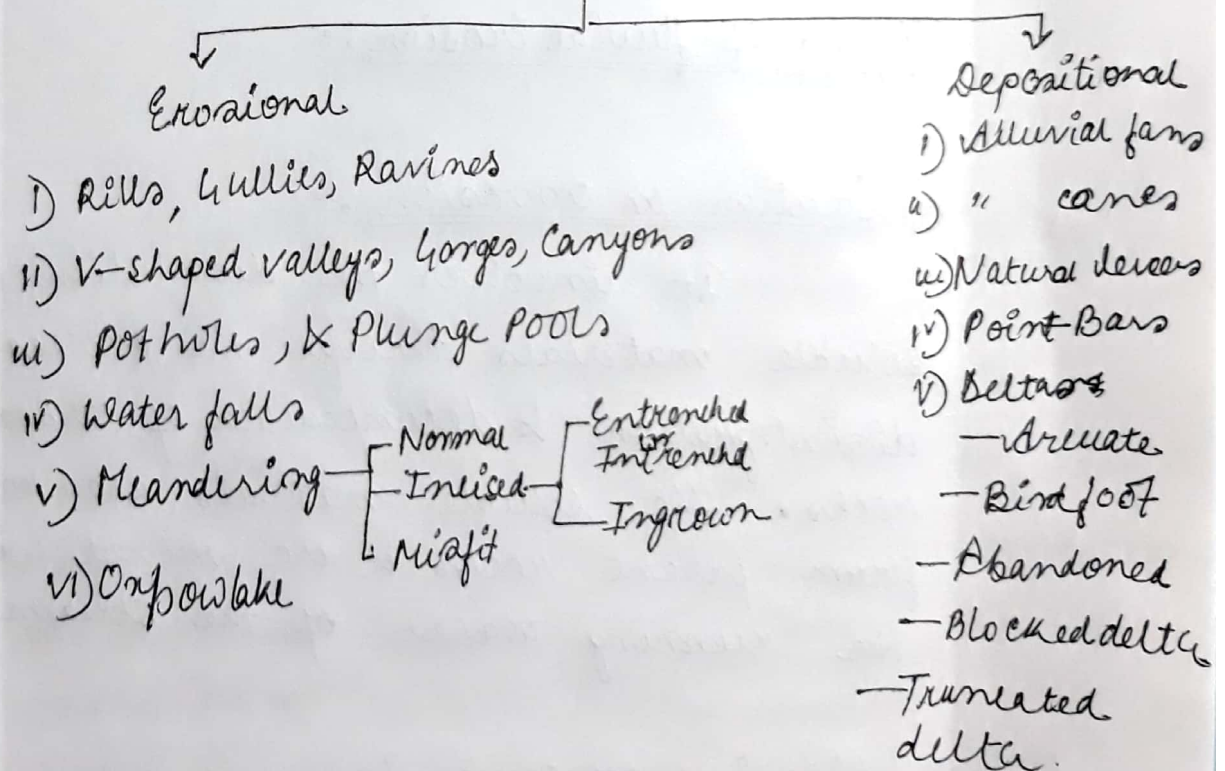 Erosional
I) Rills, Gullies, Ravines
II) V-shaped valleys, Gorges, Canyons
III) Potholes, & Plunge Pools
IV) Water falls
V) Meandering
Normal
Incised
Misfit
Entrenched
or
Intrenched
Ingrown
VI) Oxbowlake
Depositional
I) Alluvial fans
II) " cones
III) Natural levees
IV) Point Bars
V) Deltas
— Arcuate
— Bird foot
— Abandoned
— Blocked delta
— Truncated
delta.